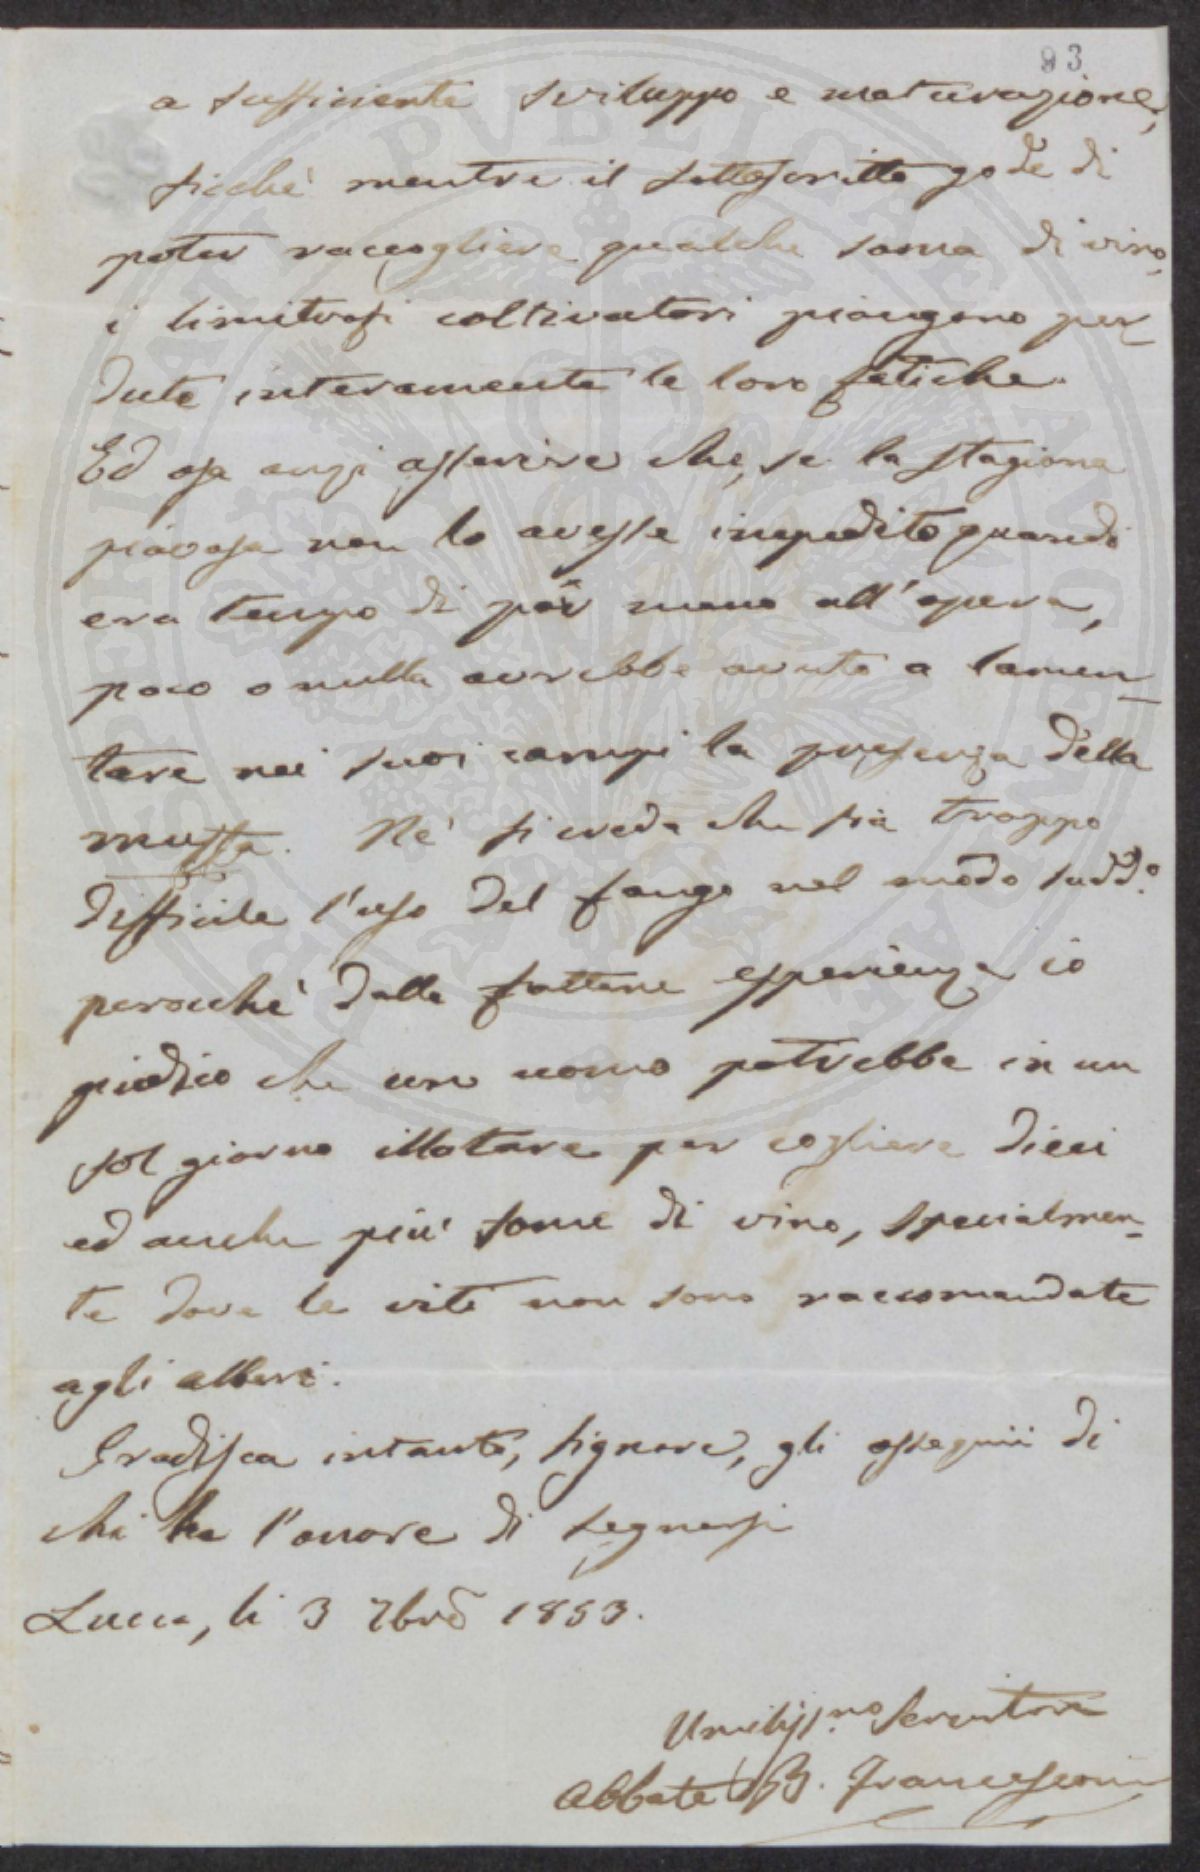 93
a sufficiente sviluppo e maturazione,
sicchè mentre il sottoscritto gode di
poter raccogliere qualche soma di vino,
i limitrofi coltivatori piangono per-
dute interamente le loro fatiche.
Ed osa anzi asserire che, se la stagione
piovosa non lo avesse impedito quando
era tempo di pôr mano all'opera,
poco o nulla avrebbe avuto a lamen-
tare nei suoi campi la presenza della
muffa. Nè si creda che sia troppo
difficile l'uso del fango nel modo sudd.o
perocchè dalle fattene esperienze io
giudico che un uomo potrebbe in un
sol giorno illotare per cogliere dieci
ed anche più some di vino, specialmen-
te dove le viti non sono raccomandate
agli alberi.
Gradisca intanto, Signore, gli ossequii di
chi ha l'onore di segnarsi
Lucca, li 3 7bre 1853.
Umiliss.mo Servitore
Abbate B. Francesconi